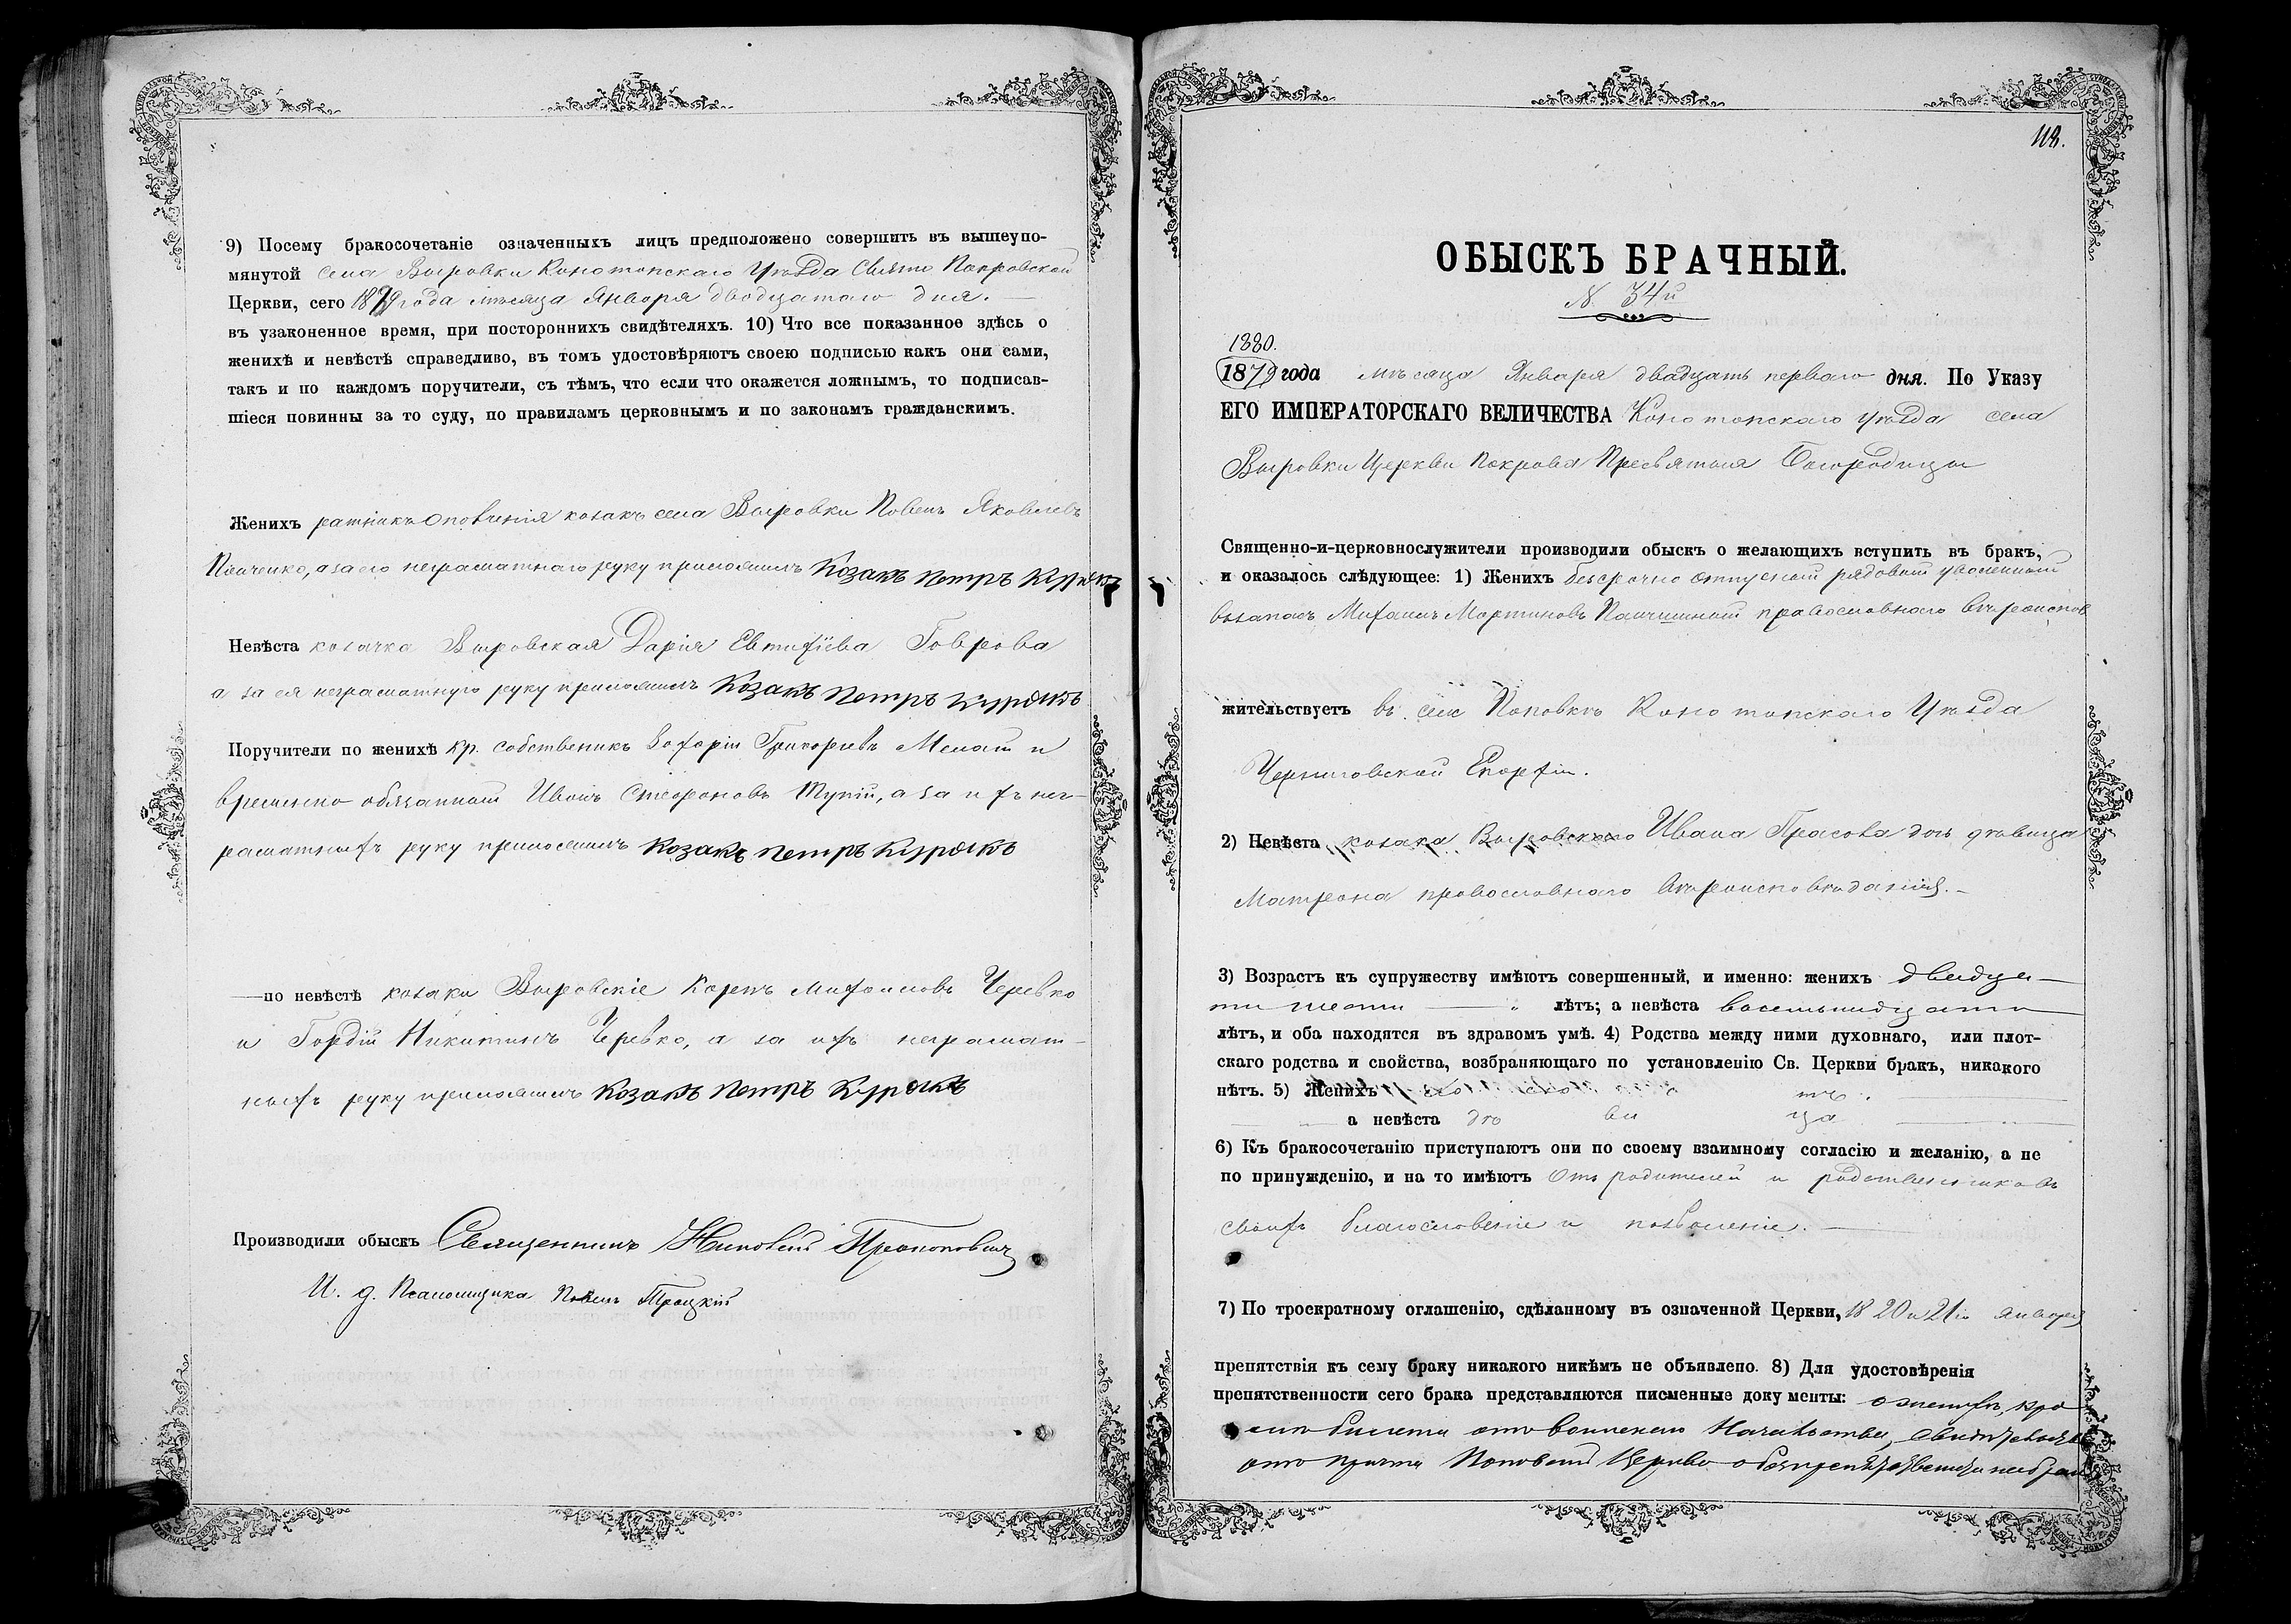 9) Посему бракосочетаніе означенныхъ лицъ предположено совершить въ вышеупо-
мянутой села Выровки Конотопскаго Уѣзда Свято Покровской
Церкви, сего 1879 года мѣсяца Января двадцатаго дня.
въ узаконенное время, при постороннихъ свидѣтеляхъ. 10) Что все показанное здѣсь о
женихѣ и невѣстѣ справедливо, въ томъ удостовѣряютъ своею подписью какъ они сами,
такъ и по каждомъ поручители, съ тѣмъ, что если что окажется ложнымъ, то подписав-
шіеся повинны за то суду, по правиламъ церковнымъ и по законамъ гражданскимъ.
Женихъ ратникъ ополченія козакъ села Выровки Павелъ Яковлевъ
а за его неграматнаго руку приложилъ Козакъ Петръ
Невѣста козачка Выровская Дарія Евтихіева Говрова
а за ея неграматную руку приложилъ Козакъ Петръ
Поручители по женихѣ кр. собственикъ Захарій Григорьевъ и
временно обязанный Иванъ Стефановъ Тупій, а за ихъ нег-
раматныхъ руку приложилъ Козакъ Петръ
по невѣстѣ козаки Выровскіе Карпъ Михаиловъ Черевко
и Гордій Никитинъ Черевко, а за ихъ неграмат-
ныхъ руку приложилъ Козакъ Петръ
Производили обыскъ Священникъ
И. д. Псаломщика Павелъ Троцкій
118.
ОБЫСКЪ БРАЧНЫЙ.
N. 34й
1880.
1879 года мѣсяца Января двадцать перваго дня. По Указу
ЕГО ИМПЕРАТОРСКАГО ВЕЛИЧЕСТВА Конотопскаго уѣзда села
Выровки Церкви Покрова Пресвятыя Богородицы
Священно-и-церковнослужители производили обыскъ о желающихъ вступить въ бракъ,
и оказалось слѣдующее: 1) Женихъ безсрочно отпускной рядовой уволенный
въ запасъ Михаилъ Мартиновъ православнаго вѣроисповѣ
жительствуетъ въ селѣ Поповкѣ Конотопскаго Уѣзда
Черниговской Епархіи.
2) Невѣста козака Выровскаго Ивана дочь дѣвица
Матрона православнаго вѣроисповѣданія.
3) Возрастъ къ супружеству имѣютъ совершенный, и именно: женихъ двадца-
ти шести лѣтъ; а невѣста восемьнадцати
лѣтъ, и оба находятся въ здравомъ умѣ. 4) Родства между ними духовнаго, или плот-
скаго родства и свойства, возбраняющаго по установленію Св. Церкви бракъ, никакого
нѣтъ. 5) Женихъ хо ло тъ.
а невѣста дѣ ви ца
6) Къ бракосочетанію приступаютъ они по своему взаимному согласію и желанію, а не
по принужденію, и на то имѣютъ отъ родителей и родственниковъ
своихъ благословеніе и позволеніе.
7) По троекратному оглашенію, сдѣланному въ означенной Церкви, 18 20 и 21го января
препятствія къ сему браку никакого никѣмъ не объявлено. 8) Для удостовѣренія
препятственности сего брака представляются писменные документы: о женихѣ, кро
билета отъ воинскаго Начальства,
отъ причта Поповской Церкви